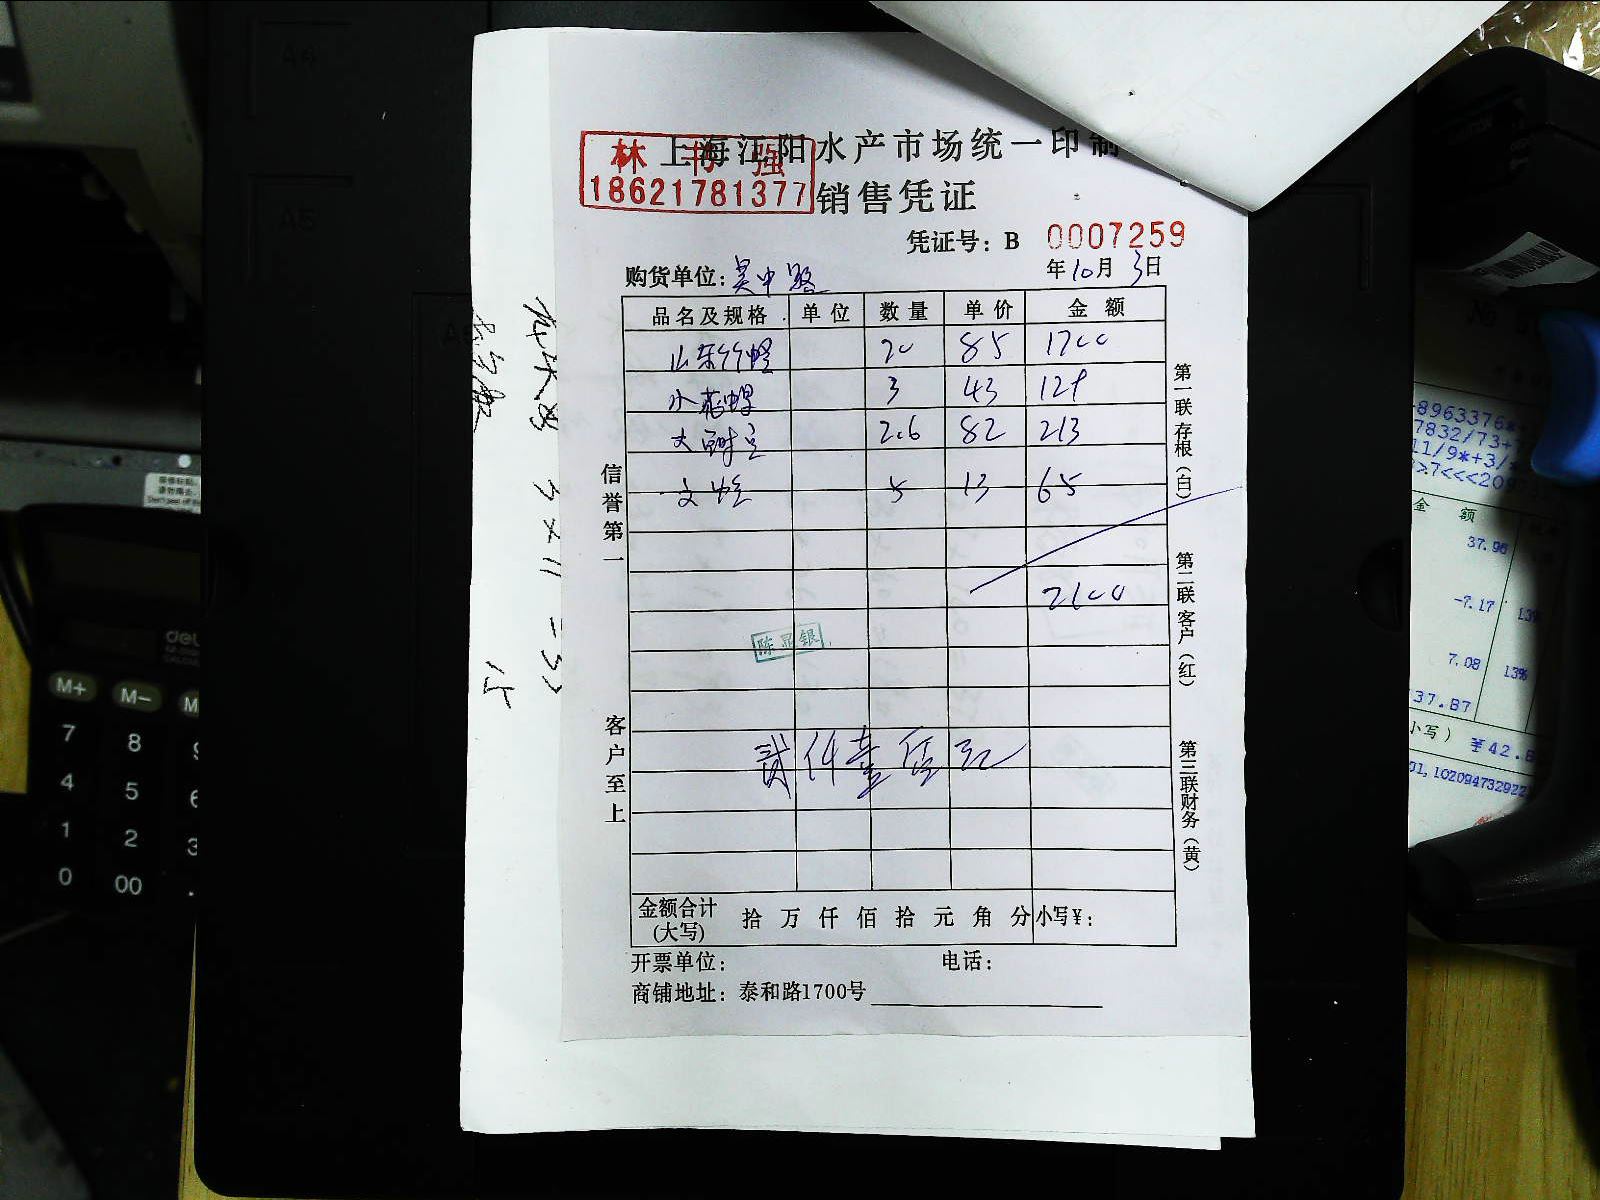 上海江阳水产市场统一印制
林书强
18621781377
销售凭证
凭证号：B 0007259
购货单位：吴中路 年10月3日
品名及规格 单位 数量 单价 金额
山东竹蛏 20 85 1700
小花螺 3 43 129
2.6 82 213
文蛤 5 13 65
2100
陈显银
贰仟壹佰元
金额合计(大写) 拾 万 仟 佰 拾 元 角 分 小写￥：
开票单位： 电话：
商铺地址：泰和路1700号
信誉第一
客户至上
第一联存根(白)
第二联客户(红)
第三联财务(黄)
A4
A5
deli
M+ M-
7 8
4 5 6
1 2 3
0 00 .
8963376*
7832/73+
11/9*+3/
>7<<<209
金 额
37.96
-7.17 13%
7.08 13%
137.87
小写） ￥42.
01,102094732922